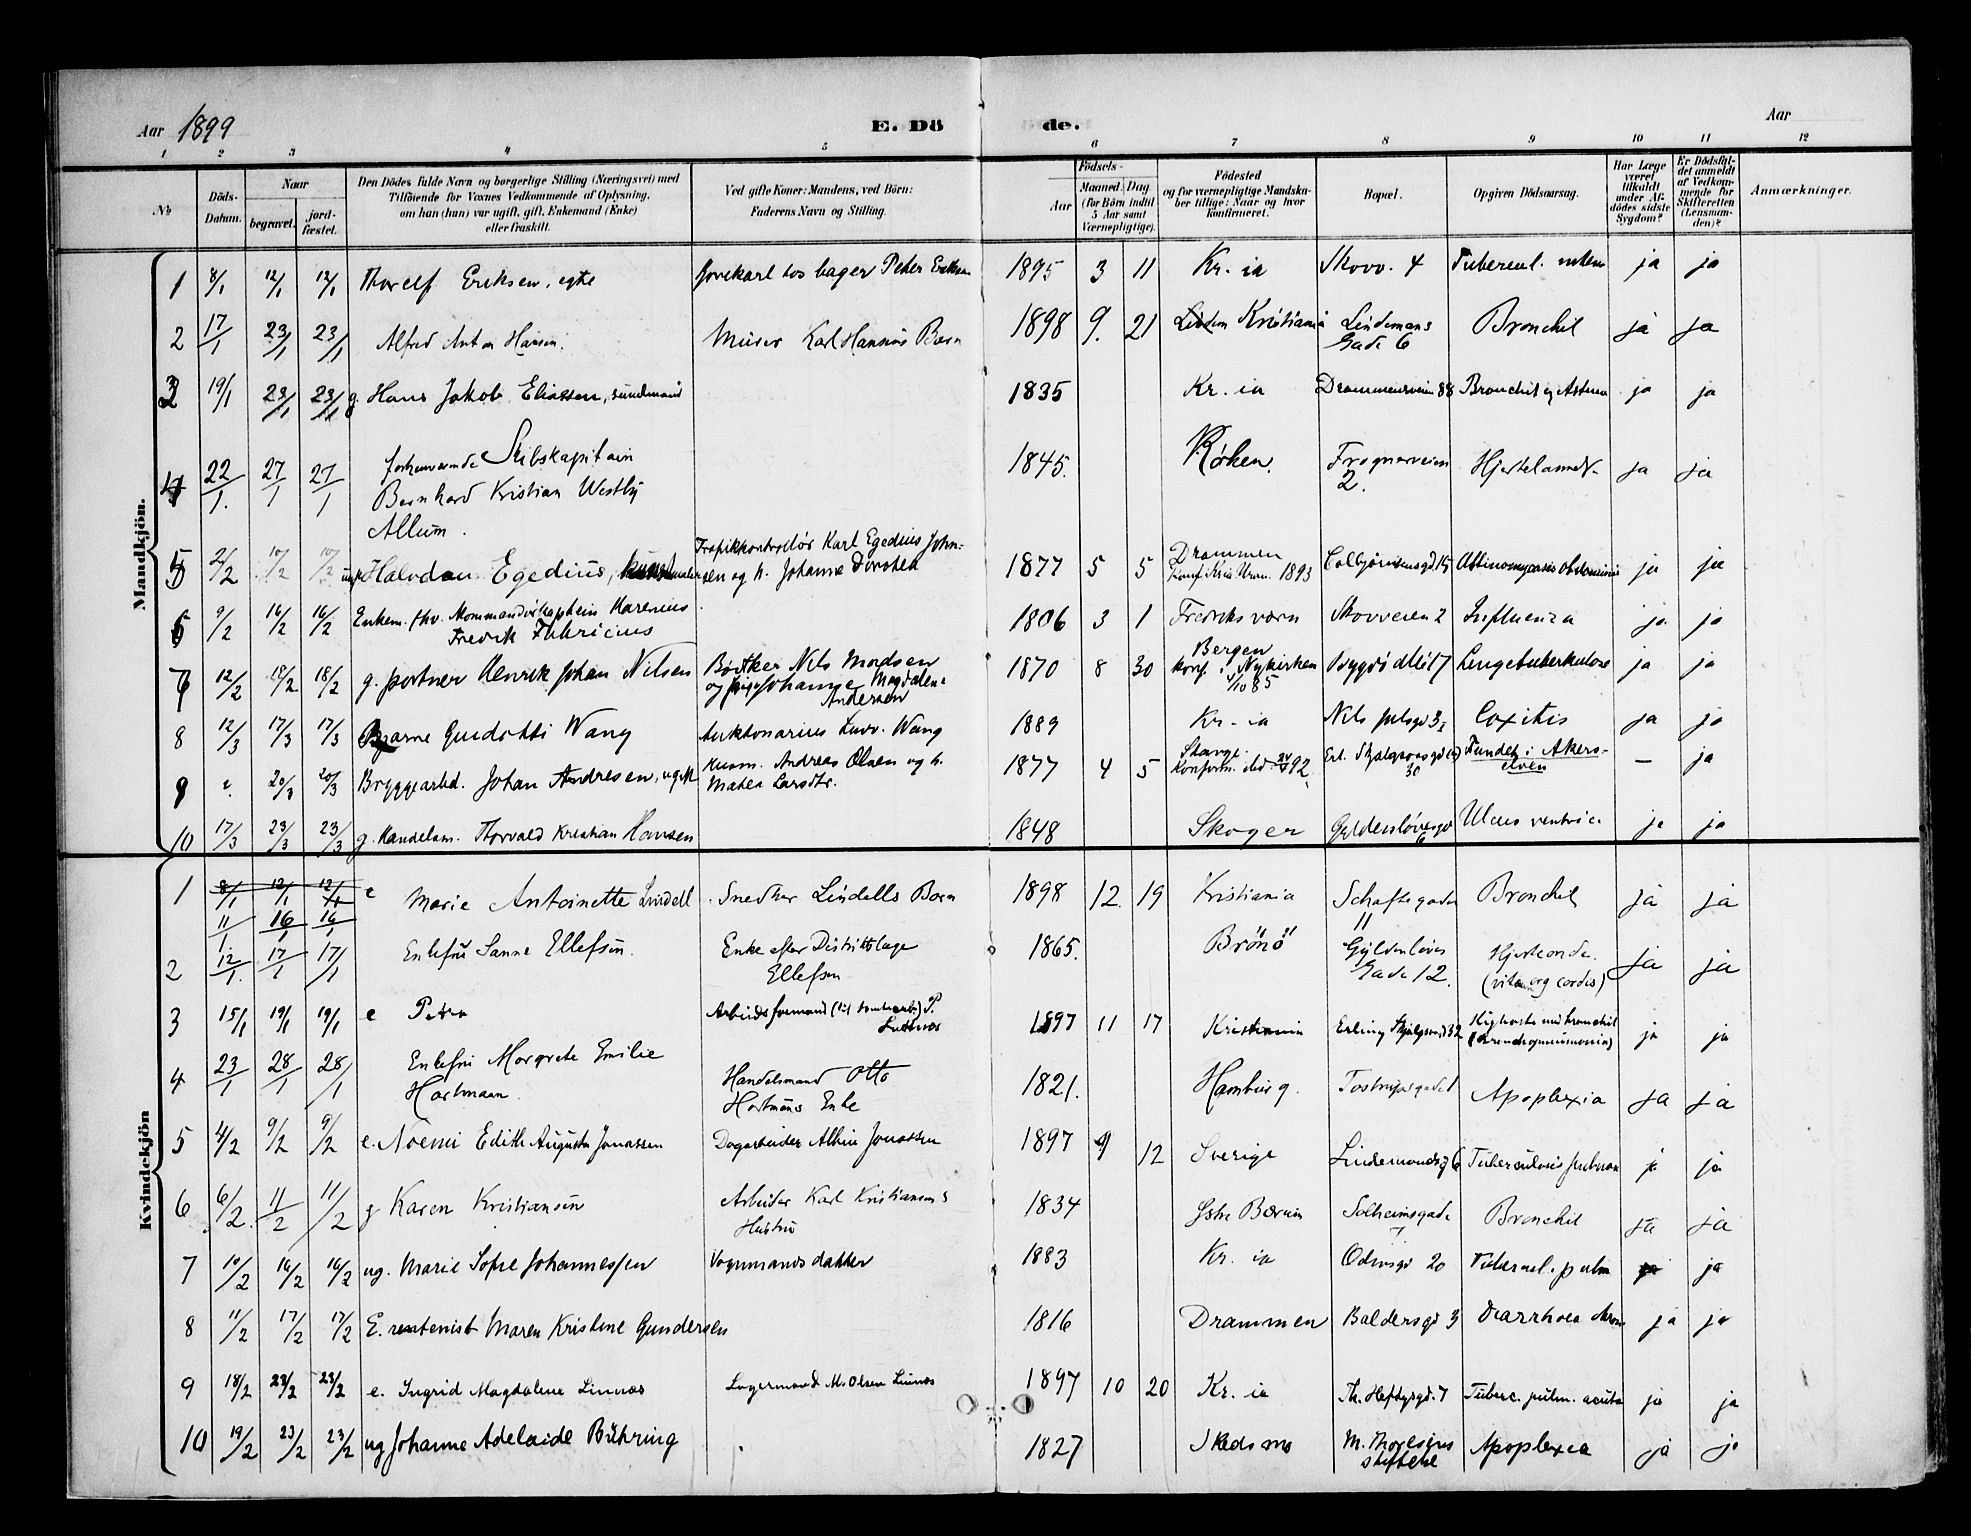 Aar 1899
E. Dö de.
Aar
1 2 3 4 5 6 7 8 9 10 11 12
No
Döds-Datum.
Naar
begravet.
jord-fæstet.
Den Dödes fulde Navn og borgerlige Stilling (Næringsvei) med
Tilföiende for Voxnes Vedkommende af Oplysning,
om han (hun) var ugift, gift, Enkemand (Enke)
eller fraskilt.
Ved gifte Koner: Mandens, ved Börn:
Faderens Navn og Stilling.
Födsels-
Aar
Maaned. Dag.
(for Börn indtil
5 Aar samt
Værnepligtige).
Födested
og for værnepligtige Mandska-
ber tillige: Naar og hvor
konfirmeret.
Bopæl.
Opgiven Dödsaarsag.
Har Læge
været
tilkaldt
under Af-
dödes sidste
Sygdom?
Er Dödsfal-
det anmeldt
af Vedkom-
mende for
Skifteretten
(Lensman-
den)?
Anmærkninger.
Mandkjön.
1 8/1 12/1 12/1 Thorolf Eriksen, egte Peter Eriksen 1895 3 11 Kr. ia Skovv. 4 Tubercul. ja ja
2 17/1 23/1 23/1 Alfred Anton Hansen. Murer Karl Hansens Barn 1898 9. 21 Kristiania Lindemans Gade 6 Bronchit ja ja
3 19/1 23/1 23/1 g. Hans Jakob Eliassen, 1835 Kr. ia Drammensveien 88 Bronchit og Astma ja ja
4 22/1. 27/1 27/1 forhenværende Skibskapitain
Bernhard Kristian Westby
Allum. 1845. Röken. Frognerveien 2. Hjertelamelse ja ja
5 2/2 10/2 10/2 ug. Halvdan Egedius, kunstmaler Trafikkontrollör Karl Egedius John-
sen og h. Johanne 1877 5 5 Drammen
Konf. Kria Uran. 1893 Colbjörnsensgd. 15 Aktinomycosis abdominis ja ja
6 9/2 16/2 16/2 Enkem. fhv. Kommandörkaptein Karenius
Fredrik Fabricius 1806 3 1 Fredriksværn Skovveien 2 Influenza ja ja
7 12/2 18/2 18/2 g. portner Henrik Johan Nilsen Bödker Nils Madsen
og pige Johanne Magdalene
Andersen 1870 8 30 Bergen
konf. i Nykirken
4/10 85 Bygdö Allé 17 Lungetuberkulose ja ja
8 12/3 17/3 17/3 Bjarne Guidotti Wang Auktionarius Ludv. Wang 1889 Kr-ia Nils Julsgd 3 Coxitis ja ja
9 20/3 20/3 Bryggearbd. Johan Andresen, ugift Husm. Andreas Olsen og h.
Mathea Larsdtr. 1877 4 5 Stange.
Konfirm. 92 Erl. Skjalgssonsgd 30 Fundet i Akers-
elven - ja
10 17/3 23/3 23/3 g. Handelsm. Thorvald Kristian Hansen 1848 Skoger Gyldenlövesgd 6 Ulcus ventric. ja ja
Kvindekjön
1 8/1 12/1 12/1 e
11/1 16/1 16/1 Marie Antoinette Lindell Snedker Lindells Barn 1898 12. 19 Kristiania Schaftesgade 11 Bronchit ja ja
2 12/1. 17/1 17/1 Enkefru Sanne Ellefsen. Enke efter Distriktslæge
Ellefsen 1865. Brönö Gyldenlöves
Gade 12. Hjerteonde.
(vitium org cordis) ja ja
3 15/1 19/1 19/1 e Petra Arbeidsformand P. 1897 11 17 Kristiania Erling Skjalgssd. 32 Kighoste med bronchit
(Bronchopneumonia) ja ja
4 23/1 28/1 28/1 Enkefru Margrete Emilie
Hartmann. Handelsmand Otto
Hartmans Enke 1821. Hamburg. Tostrupsgade 1 Apoplexia ja ja
5 4/2 9/2 9/2 e. Noemi Edith Augusta Jonassen Dagarbeider Albin Jonassen 1897 9 12 Sverige Lindemansg 6 Tuberculosis pulmon ja ja
6 6/2. 11/2 11/2 g Karen Kristiansen Arbeider Karl Kristiansens
Hustru 1834 Östre Bærum Solheimsgade 7 Bronchit ja ja
7 10/2 16/2 16/2 ug. Marie Sofie Johannessen Vognmandsdatter 1883 Kr. ia Odinsgd 20 Tubercul. pulm ja ja
8 11/2 17/2 17/2 E. rentenist Maren Kristine Gundersen 1816 Drammen Baldersgd 3 Diarrhoea chron ja ja
9 18/2 23/2 23/2 e. Ingrid Magdalene Linnæs Lagermand M. Olsen Linnæs 1897 10 20 Kr. ia Th. Heftyesgd. 7 Tuberc. pulm. acuta ja ja
10 19/2 23/2 23/2 ug Johanne Adelaide Bühring 1827 Skedsmo M. Thoresens
stiftelse Apoplexia ja ja